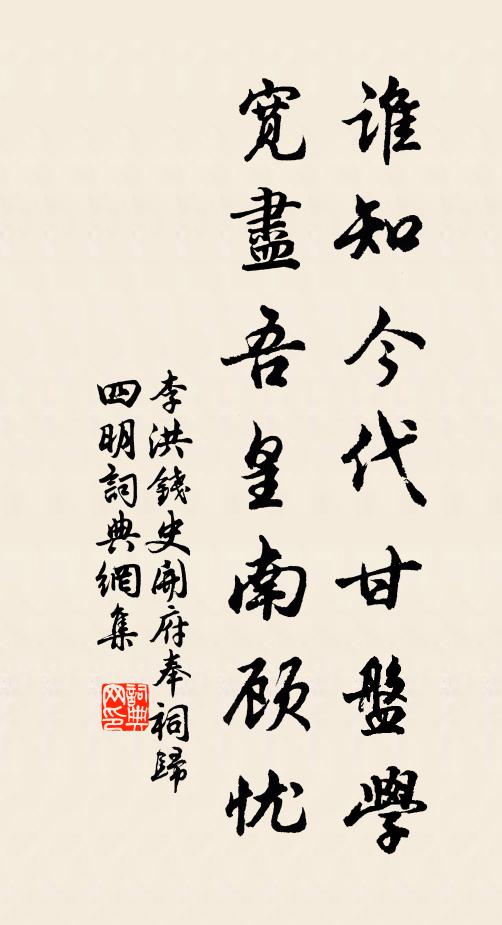 誰知今代甘盤學
寬盡吾皇南顧忧
李洪錢史開府奉祠歸
四明詞典網集
詞典
网印